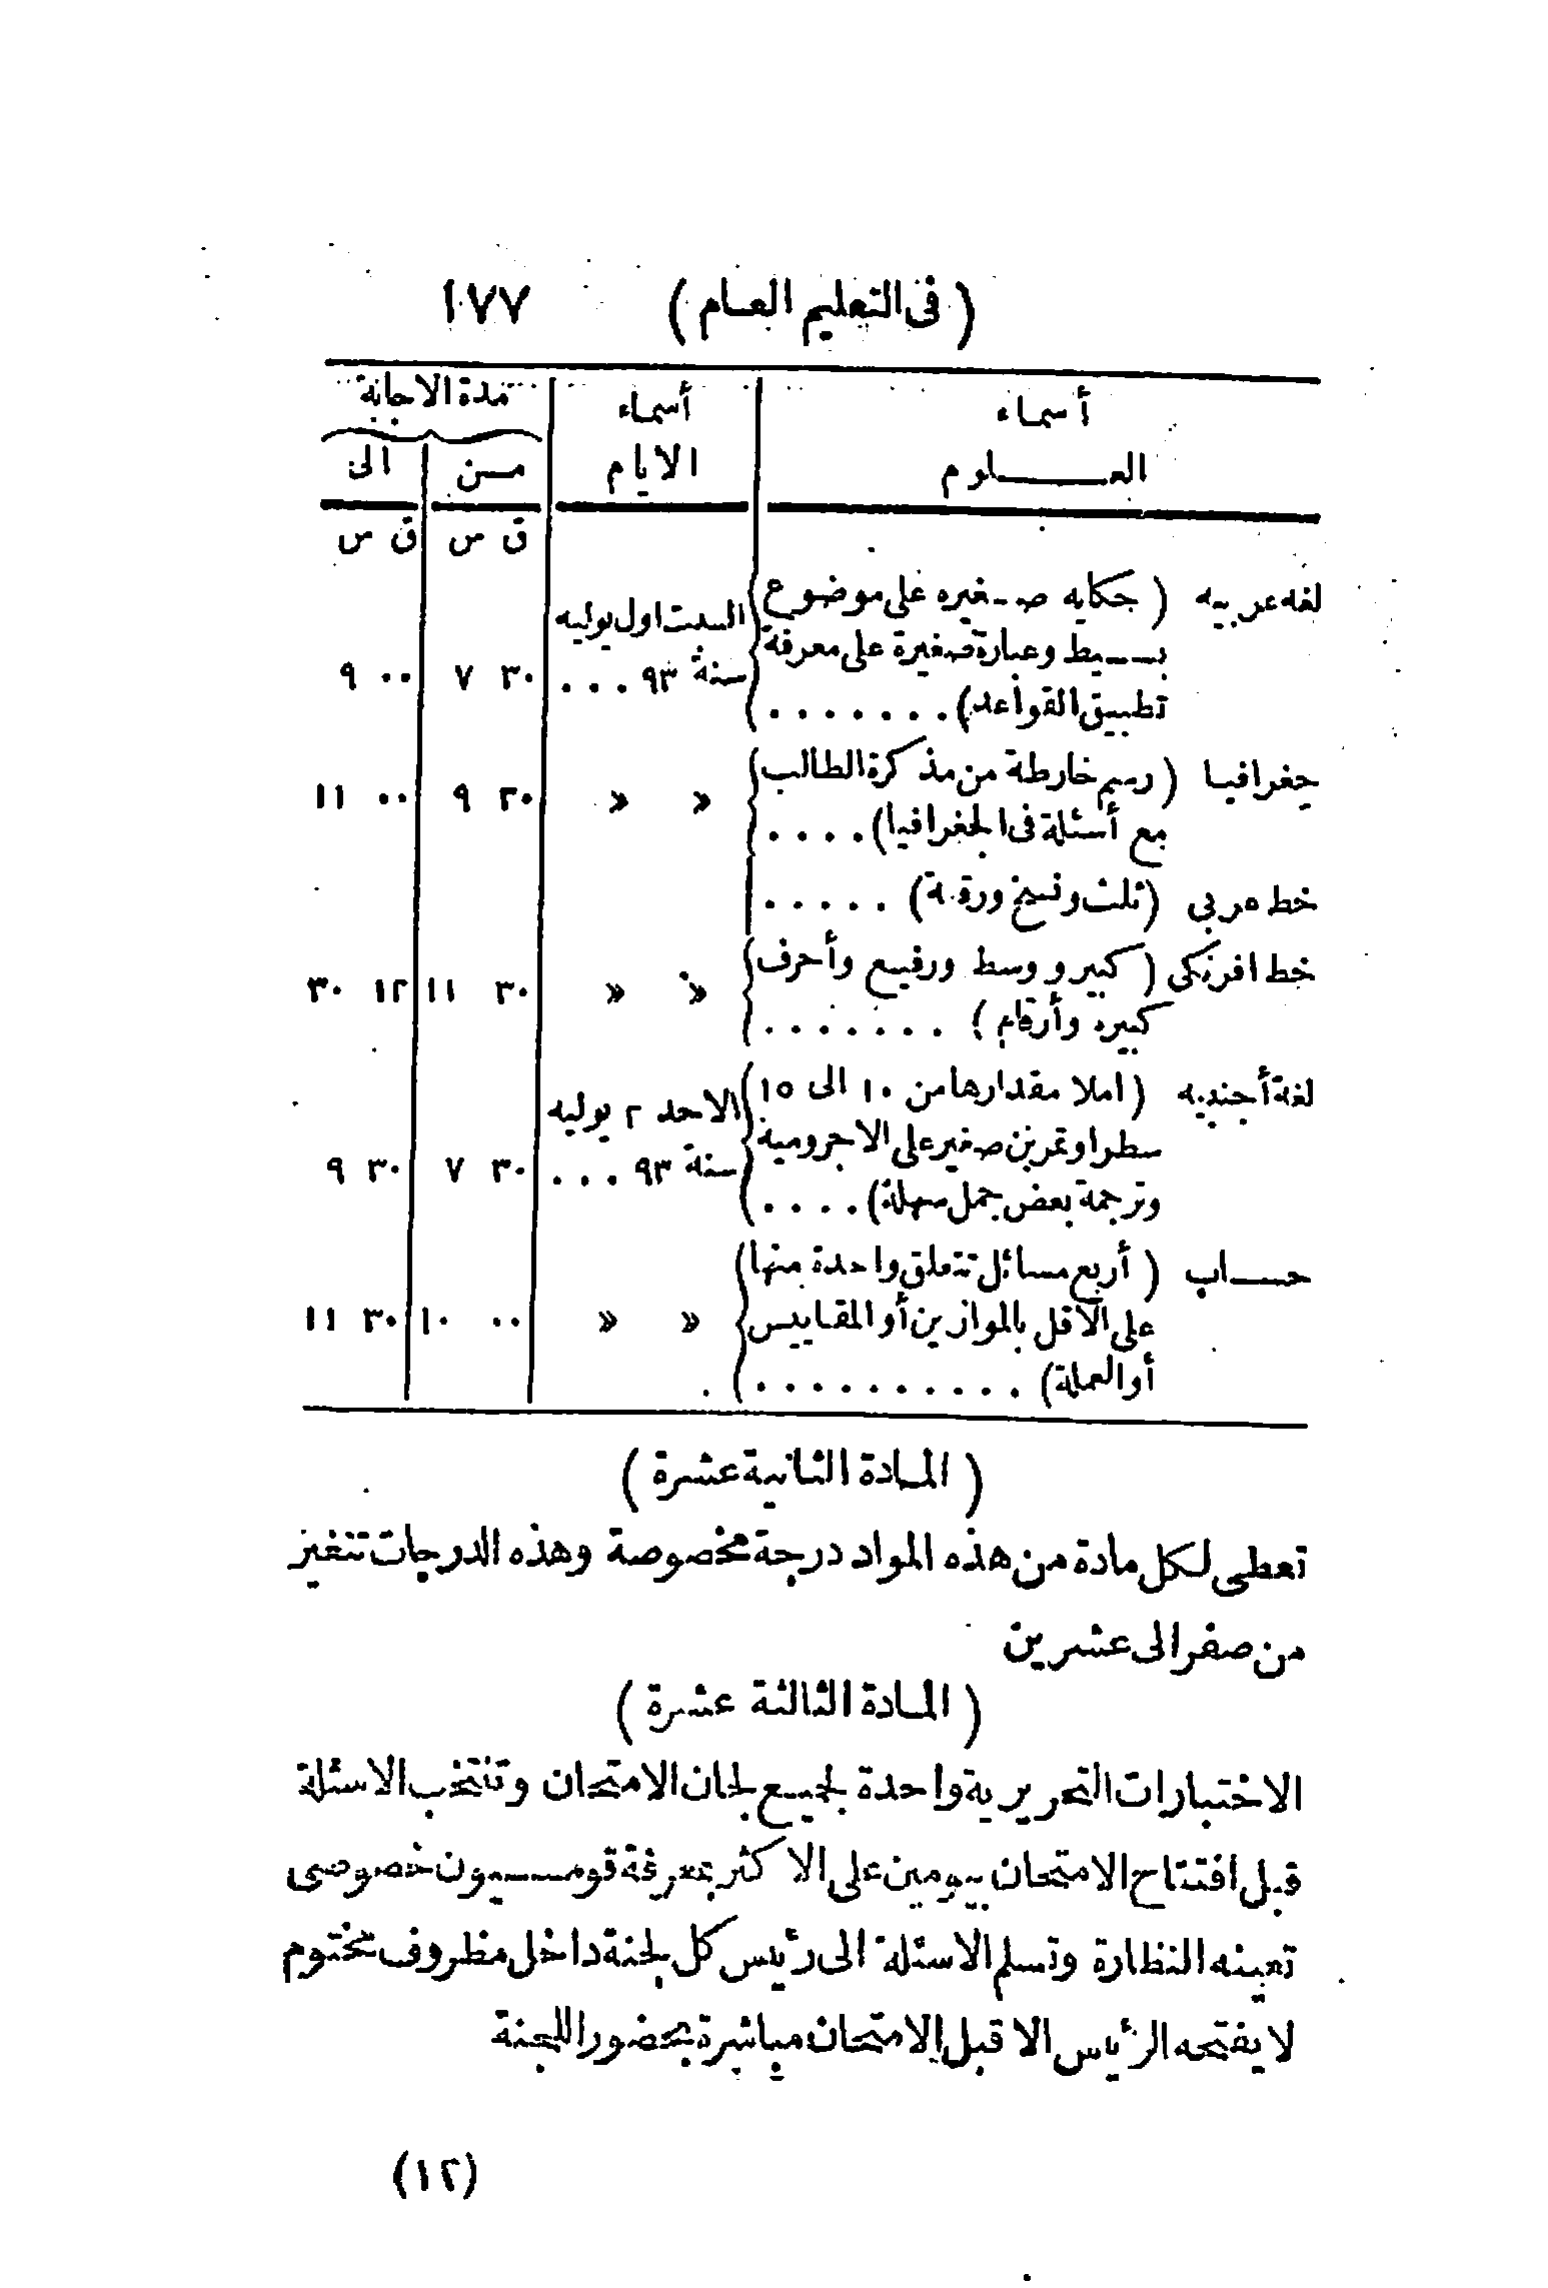 ( فى التعليم العـام ) ١٧٧
أسماء العـــــلوم | أسماء الايام | مدة الاجابة
مـن | الى
ق س | ق س
لغه عربيه ( حكايه صـغيره على موضوع
بـــيط وعبارة صغيرة على معرفة
تطبيق القواعد) . . . . . . . | السبت اول يوليه سنة ٩٣ . . . | ٣٠ ٧ | ٠٠ ٩
جغرافيـا ( رسم خارطة من مذكرة الطالب
مع أسئلة فى الجغرافيا) . . . . | » » | ٣٠ ٩ | ٠٠ ١١
خط عربى (ثلث ونسخ ورقعة) . . . . .
خط افرنكى ( كبير ووسط ورفيع وأحرف
كبيره وأرقام ) . . . . . . . | » » | ٣٠ ١١ | ٣٠ ١٢
لغة أجنبيه ( املا مقدارها من ١٠ الى ١٥
سطرا وتمرين صغير على الاجرومية
وترجمة بعض جمل سهلة) . . . . | الاحد ٢ يوليه سنة ٩٣ . . . | ٣٠ ٧ | ٣٠ ٩
حســاب ( أربع مسائل تتعلق واحدة منها
على الاقل بالموازين أو المقاييس
أو العملة) . . . . . . . . . . | » » | ٠٠ ١٠ | ٣٠ ١١
( المـادة الثانية عشرة )
تعطى لكل مادة من هذه المواد درجة مخصوصة وهذه الدرجات تتغير
من صفر الى عشرين
( المـادة الثالثة عشرة )
الاختبارات التحريرية واحدة لجميع لجان الامتحان وتنتخب الاسئلة
قبل افتتاح الامتحان بيومين على الاكثر بمعرفة قومسيون خصوصى
تعينه النظارة وتسلم الاسئلة الى رئيس كل لجنة داخل مظروف مختوم
لا يفتحه الرئيس الا قبل الامتحان مباشرة بحضور اللجنة
(١٢)